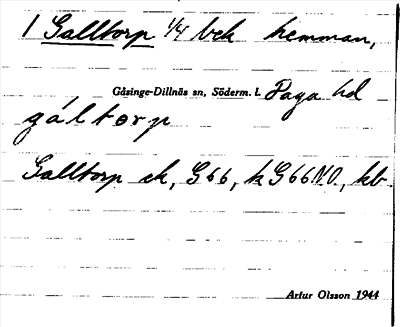 1 Galltorp 1/4 bek hemman,
Gåsinge-Dillnäs sn, Söderm. l. Daga hd
gáltorp
Galltorp ek, G66, k G66NO, kb
Artur Olsson 1944